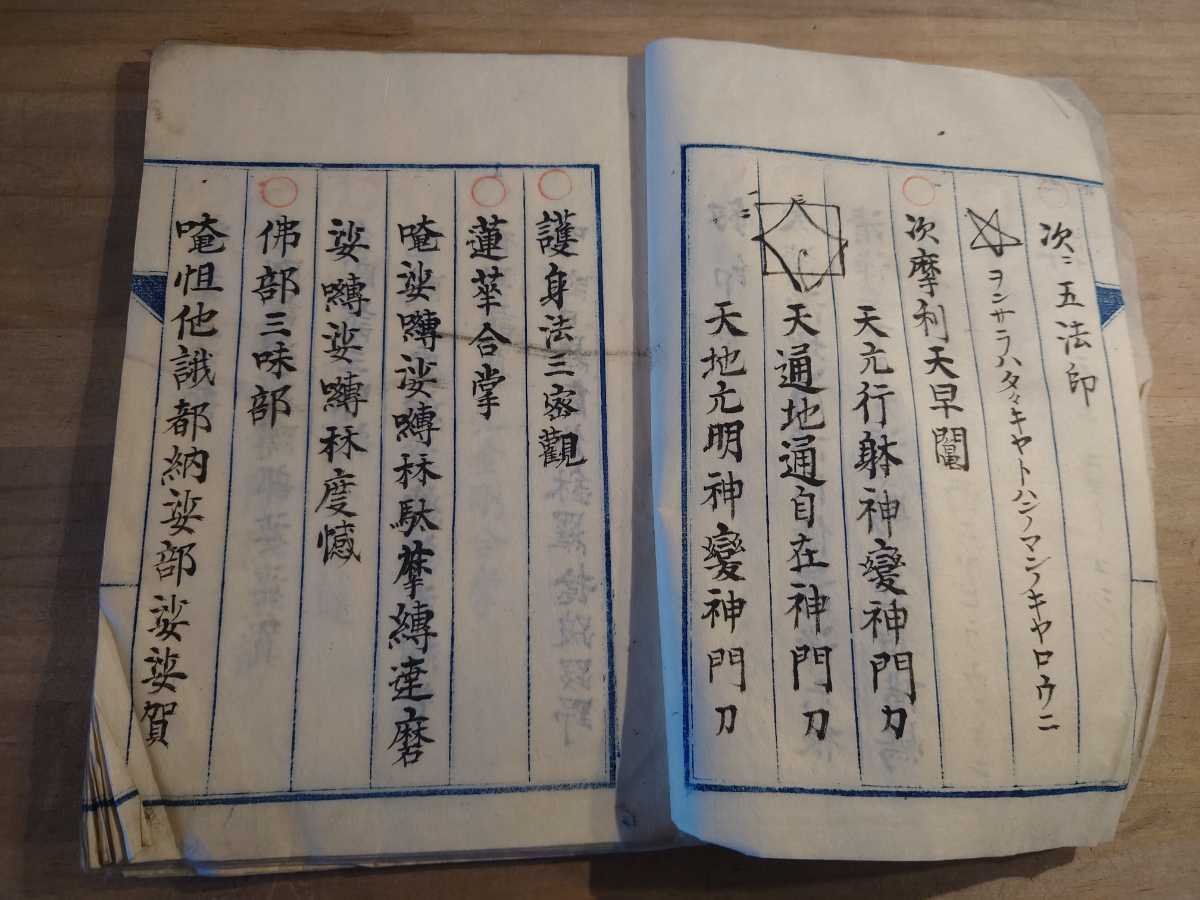 次ニ五法印
ヲンサラハタタキヤトハンノマンノキヤロウニ
次摩利天早闇
天元行躰神變神門力
天通地通自在神門刀
天地元明神變神門刀
護身法三密觀
蓮華合掌
唵娑嚩娑嚩秫駄摩縛達磨
娑嚩娑嚩秫度憾
佛部三昧部
唵怛他誐都納娑部娑娑賀